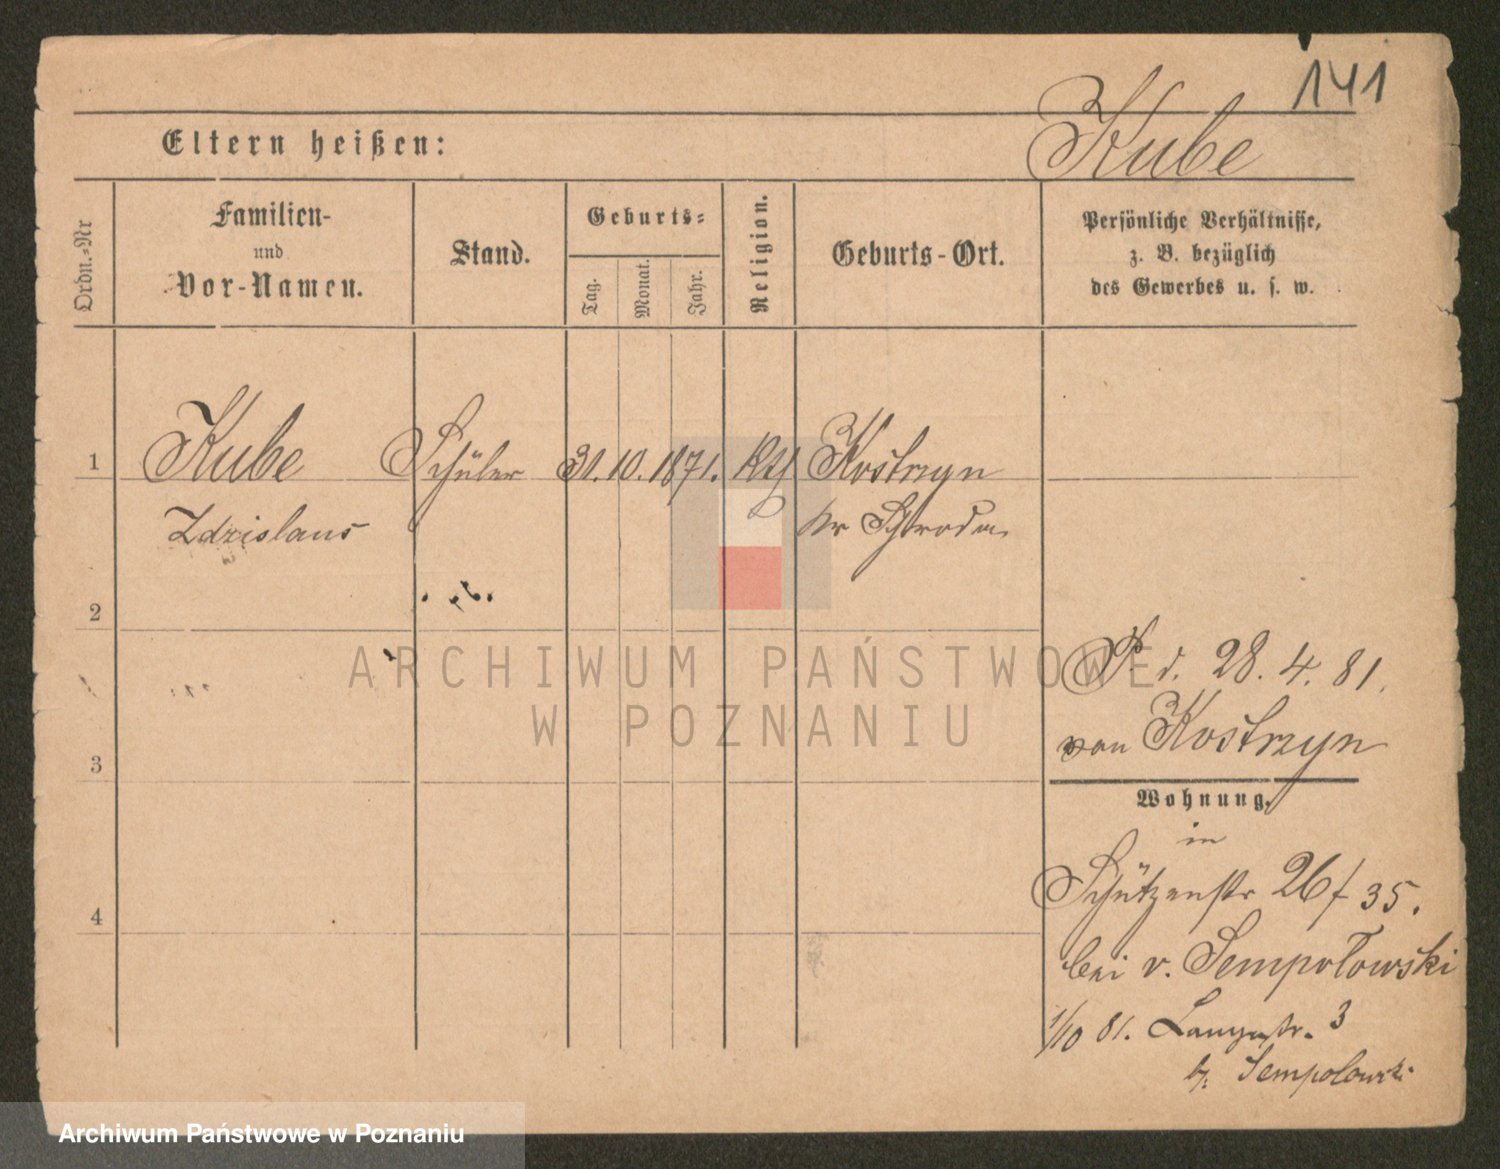 141
Kube
Eltern heißen:
Ordn.-Nr
Familien-
und
Vor-Namen.
Stand.
Geburts-
Tag.
Monat.
Jahr.
Religion.
Geburts-Ort.
Persönliche Verhältnisse,
z. B. bezüglich
des Gewerbes u. s. w.
1 Kube Schüler 31. 10. 1871. Kth Kostrzyn
Zdzislaus Kr Schroda
2
3
4
P. d. 28. 4. 81.
von Kostrzyn
Wohnung.
in
Schützenstr 26/35.
bei v. Sempołowski
1/10 81. Langestr. 3
b. Sempolowski
ARCHIWUM PAŃSTWOWE
W POZNANIU
Archiwum Państwowe w Poznaniu